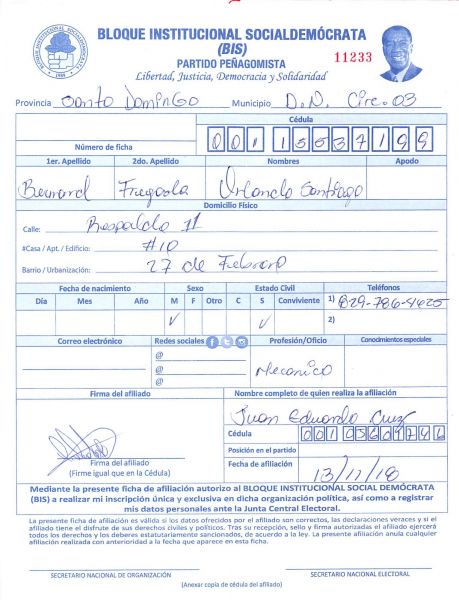 BLOQUE INSTITUCIONAL SOCIALDEMÓCRATA
(BIS)
PARTIDO PEÑAGOMISTA
11233
Libertad, Justicia, Democracia y Solidaridad
Provincia Santo Domingo Municipio D.N. Circ. 03
Cédula
Número de ficha 001 1553719 9
1er. Apellido 2do. Apellido Nombres Apodo
Orlando Santiago
Domicilio Físico
Calle: Respaldo 11
#Casa / Apt. / Edificio: #10
Barrio / Urbanización: 27 de Febrero
Fecha de nacimiento Sexo Estado Civil Teléfonos
Día Mes Año M F Otro C S Conviviente 1) 829-786-4625
✓ ✓ 2)
Correo electrónico Redes sociales Profesión/Oficio Conocimientos especiales
@
@ Mecanico
@
Firma del afiliado Nombre completo de quien realiza la afiliación
Juan Eduardo Cruz
Cédula
Posición en el partido
Firma del afiliado Fecha de afiliación
(Firme igual que en la Cédula) 13/11/18
Mediante la presente ficha de afiliación autorizo al BLOQUE INSTITUCIONAL SOCIAL DEMÓCRATA
(BIS) a realizar mi inscripción única y exclusiva en dicha organización política, así como a registrar
mis datos personales ante la Junta Central Electoral.
La presente ficha de afiliación es válida si los datos ofrecidos por el afiliado son correctos, las declaraciones veraces y si el
afiliado tiene el disfrute de sus derechos civiles y políticos. Tras su recepción, sello y firma autorizadas el afiliado ejercerá
todos los derechos y los deberes estatutariamente sancionados, de acuerdo a la ley. La presente afiliación anula cualquier
afiliación realizada con anterioridad a la fecha que aparece en esta ficha.
SECRETARIO NACIONAL DE ORGANIZACIÓN SECRETARIO NACIONAL ELECTORAL
(Anexar copia de cédula del afiliado)